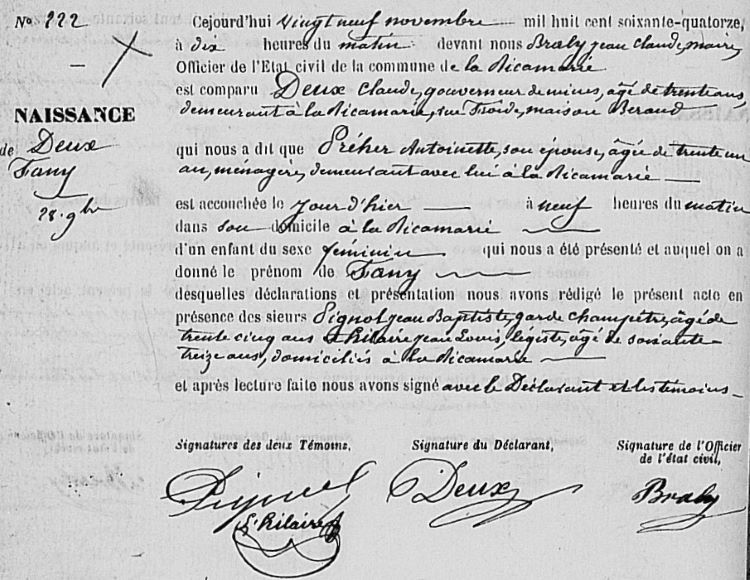 No 222
Cejourd'hui vingt neuf novembre mil huit cent soixante-quatorze,
à dix heures du matin devant nous Braly jean Claude, maire,
Officier de l'Etat civil de la commune de la Ricamarie
est comparu Deux Claude, gouverneur de mines, âgé de trente ans,
demeurant à la Ricamarie, rue Froide, maison Beraud
NAISSANCE
de Deux
Fany
28. 9bre
qui nous a dit que Préher Antoinette, son épouse, âgée de trente un
an, ménagère, demeurant avec lui à la Ricamarie
est accouchée le jour d'hier à neuf heures du matin
dans son domicile à la Ricamarie
d'un enfant du sexe féminin qui nous a été présenté et auquel on a
donné le prénom de Fany
desquelles déclarations et présentation nous avons rédigé le présent acte en
présence des sieurs Pignol jean Baptiste, garde champêtre, âgé de
trente cinq ans & hilaire jean Louis, légiste, âgé de soixante-
treize ans, domiciliés à la Ricamarie
et après lecture faite nous avons signé avec le Déclarant et les témoins
Signatures des deux Témoins, Signature du Déclarant, Signature de l'Officier
de l'état civil,
Pignol Deux Braly
L. hilaire